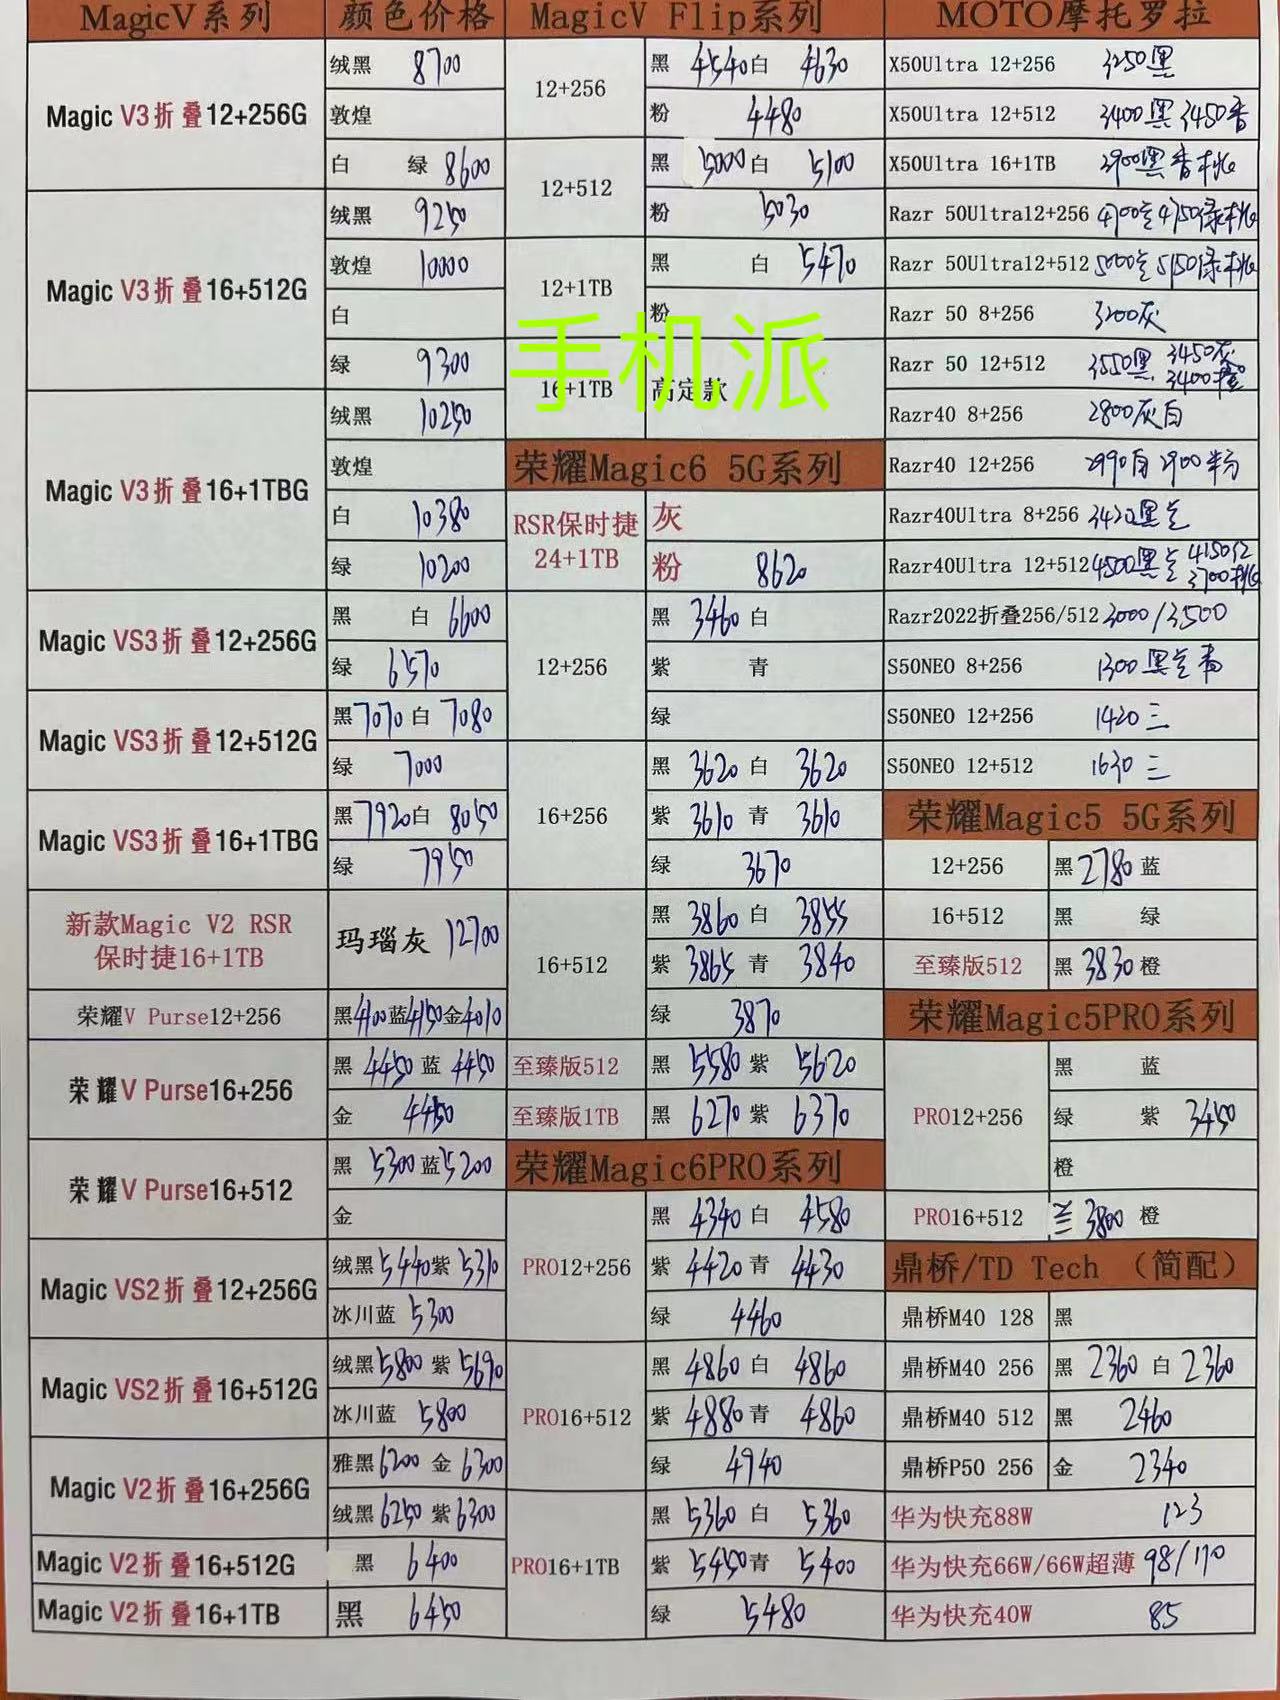 MagicV系列 颜色价格
Magic V3折叠12+256G
绒黑 8700
敦煌
白 绿 8600
Magic V3折叠16+512G
绒黑 9250
敦煌 10000
白
绿 9300
Magic V3折叠16+1TBG
绒黑 10250
敦煌
白 10380
绿 10200
Magic VS3折叠12+256G
黑 白 6600
绿 6570
Magic VS3折叠12+512G
黑 7070 白 7080
绿 7000
Magic VS3折叠16+1TBG
黑 7920 白 8050
绿 7950
新款Magic V2 RSR
保时捷16+1TB
玛瑙灰 12700
荣耀V Purse12+256
黑 4100 蓝 4150 金 4010
荣耀V Purse16+256
黑 4450 蓝 4450
金 4450
荣耀V Purse16+512
黑 5300 蓝 5200
金
Magic VS2折叠12+256G
绒黑 5440 紫 5310
冰川蓝 5300
Magic VS2折叠16+512G
绒黑 5800 紫 5690
冰川蓝 5800
Magic V2折叠16+256G
雅黑 6200 金 6300
绒黑 6250 紫 6300
Magic V2折叠16+512G
黑 6400
Magic V2折叠16+1TB
黑 6450
MagicV Flip系列
12+256
黑 4540 白 4630
粉 4480
12+512
黑 5000 白 5100
粉 5030
12+1TB
黑 白 5470
粉
手机派
16+1TB
高定款
荣耀Magic6 5G系列
RSR保时捷
24+1TB
灰
粉 8620
12+256
黑 3460 白
紫 青
绿
16+256
黑 3620 白 3620
紫 3610 青 3610
绿 3670
16+512
黑 3860 白 3855
紫 3865 青 3840
绿 3870
至臻版512 黑 5580 紫 5620
至臻版1TB 黑 6270 紫 6370
荣耀Magic6PRO系列
PRO12+256
黑 4340 白 4580
紫 4420 青 4430
绿 4460
PRO16+512
黑 4860 白 4860
紫 4880 青 4860
绿 4940
PRO16+1TB
黑 5360 白 5360
紫 5450 青 5400
绿 5480
MOTO摩托罗拉
X50Ultra 12+256 3250黑
X50Ultra 12+512 3400黑 3450杏
X50Ultra 16+1TB 3900黑杏桃
Razr 50Ultra12+256 4700兰 4750绿桃
Razr 50Ultra12+512 5000兰 5150绿桃
Razr 50 8+256 3200灰
Razr 50 12+512 3550黑 3450灰
3400橙
Razr40 8+256 2800灰白
Razr40 12+256 2990白 2900粉
Razr40Ultra 8+256 3420黑兰
Razr40Ultra 12+512 4500黑兰 4150红
3700桃
Razr2022折叠256/512 3000/3500
S50NEO 8+256 1300黑兰青
S50NEO 12+256 1420三
S50NEO 12+512 1630三
荣耀Magic5 5G系列
12+256 黑 2780 蓝
16+512 黑 绿
至臻版512 黑 3830 橙
荣耀Magic5PRO系列
PRO12+256
黑 蓝
绿 紫 3450
橙
PRO16+512 3800 橙
鼎桥/TD Tech （简配）
鼎桥M40 128 黑
鼎桥M40 256 黑 2360 白 2360
鼎桥M40 512 黑 2460
鼎桥P50 256 金 2340
华为快充88W 123
华为快充66W/66W超薄 98/110
华为快充40W 85